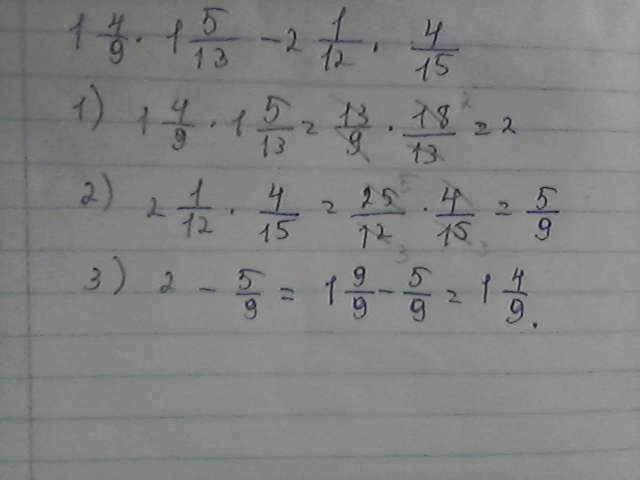 1 4/9 · 1 5/13 - 2 1/12 · 4/15
1) 1 4/9 · 1 5/13 = 13/9 · 18/13 2 = 2
2) 2 1/12 · 4/15 = 25/12 · 4/15 = 5/9 5 3 3
3) 2 - 5/9 = 1 9/9 - 5/9 = 1 4/9.